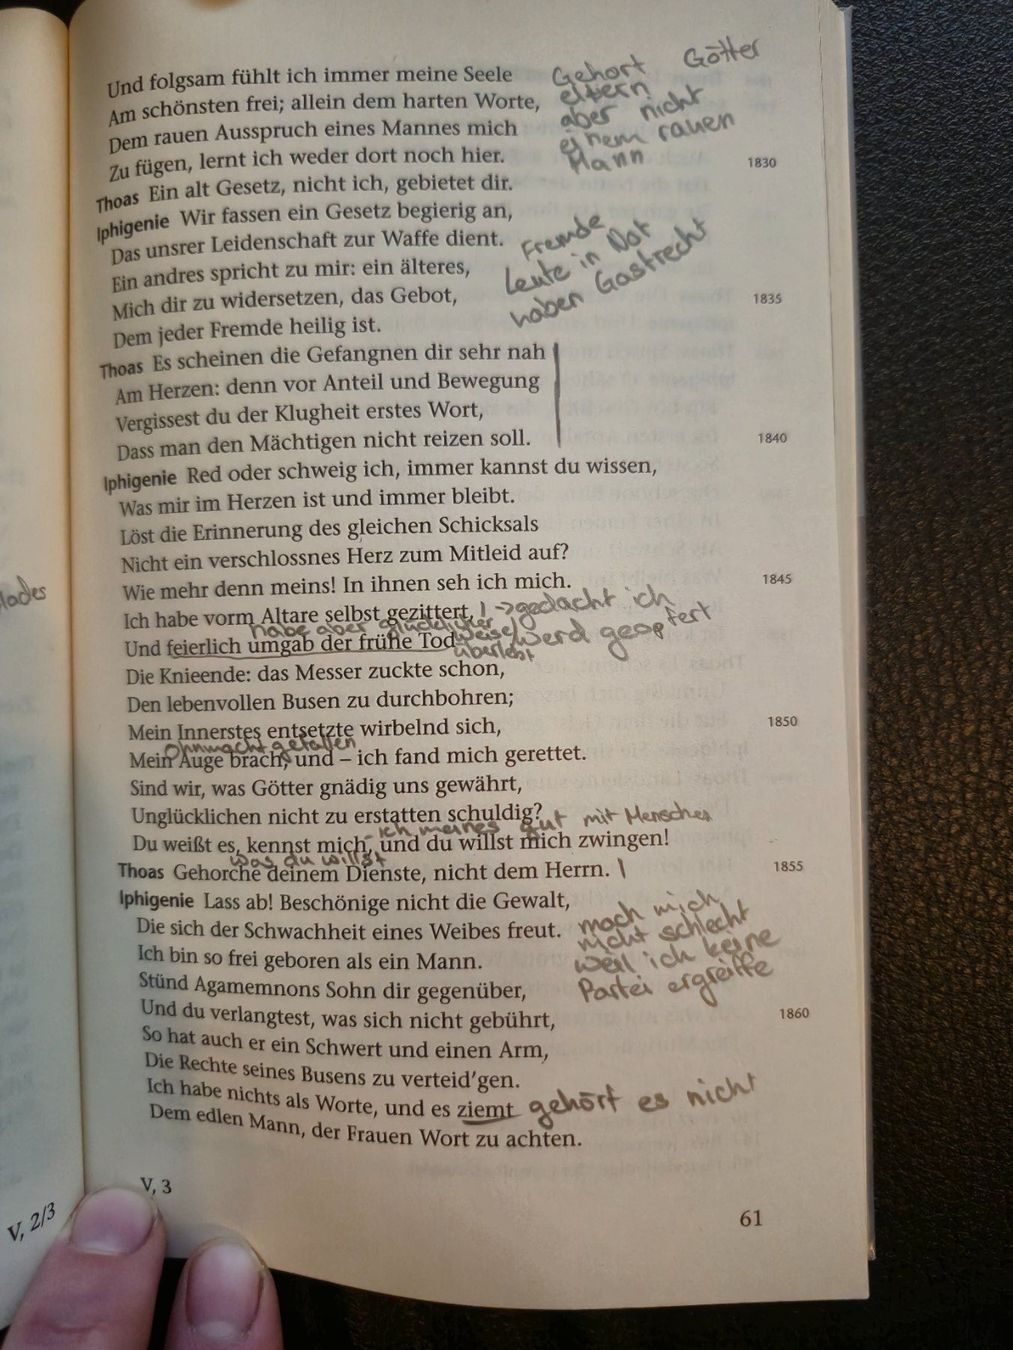 Und folgsam fühlt ich immer meine Seele
Am schönsten frei; allein dem harten Worte,
Dem rauen Ausspruch eines Mannes mich
Zu fügen, lernt ich weder dort noch hier.
Gehört Götter
eltern
aber nicht
einem rauen
Mann
1830
Thoas Ein alt Gesetz, nicht ich, gebietet dir.
Iphigenie Wir fassen ein Gesetz begierig an,
Das unsrer Leidenschaft zur Waffe dient.
Ein andres spricht zu mir: ein älteres,
Mich dir zu widersetzen, das Gebot,
Dem jeder Fremde heilig ist.
Fremde
Leute in Not
haben Gastrecht
1835
Thoas Es scheinen die Gefangnen dir sehr nah
Am Herzen: denn vor Anteil und Bewegung
Vergissest du der Klugheit erstes Wort,
Dass man den Mächtigen nicht reizen soll.
1840
Iphigenie Red oder schweig ich, immer kannst du wissen,
Was mir im Herzen ist und immer bleibt.
Löst die Erinnerung des gleichen Schicksals
Nicht ein verschlossnes Herz zum Mitleid auf?
Wie mehr denn meins! In ihnen seh ich mich.
1845
Ich habe vorm Altare selbst gezittert, ! → gedacht ich
werd geopfert
habe aber glücklicher
weise
überlebt
Und feierlich umgab der frühe Tod
Die Kniende: das Messer zuckte schon,
Den lebenvollen Busen zu durchbohren;
Mein Innerstes entsetzte wirbelnd sich,
1850
ohnmacht gefallen
Mein Auge brach, und – ich fand mich gerettet.
Sind wir, was Götter gnädig uns gewährt,
Unglücklichen nicht zu erstatten schuldig?
ich meines gut mit Menschen
Du weißt es, kennst mich, und du willst mich zwingen!
was du willst
Thoas Gehorche deinem Dienste, nicht dem Herrn.
1855
Iphigenie Lass ab! Beschönige nicht die Gewalt,
Die sich der Schwachheit eines Weibes freut.
Ich bin so frei geboren als ein Mann.
Stünd Agamemnons Sohn dir gegenüber,
mach mich
nicht schlecht
weil ich keine
Partei ergreiffe
Und du verlangtest, was sich nicht gebührt,
1860
So hat auch er ein Schwert und einen Arm,
Die Rechte seines Busens zu verteid'gen.
Ich habe nichts als Worte, und es ziemt gehört es nicht
Dem edlen Mann, der Frauen Wort zu achten.
V, 2/3
V, 3
61